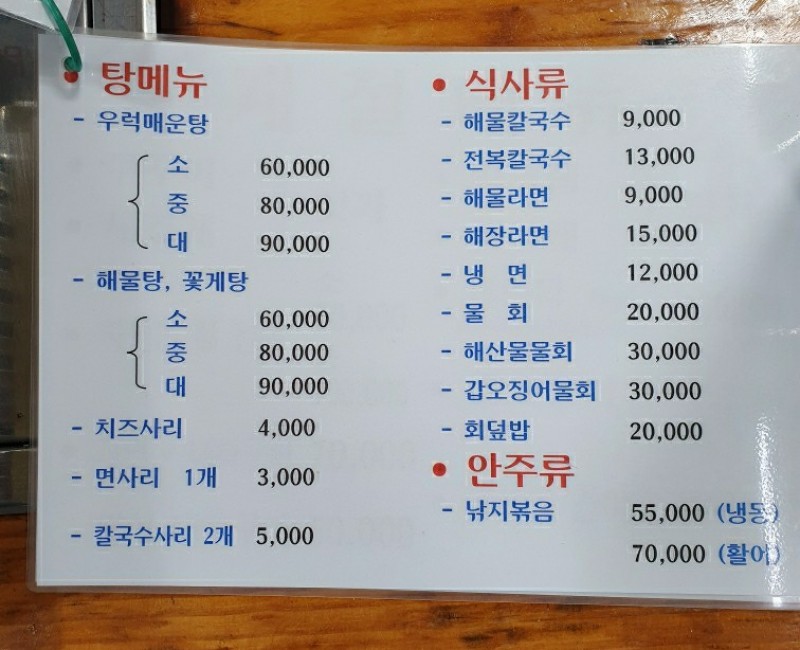 • 탕메뉴
- 우럭매운탕
소 60,000
중 80,000
대 90,000
- 해물탕, 꽃게탕
소 60,000
중 80,000
대 90,000
- 치즈사리 4,000
- 면사리 1개 3,000
- 칼국수사리 2개 5,000
• 식사류
- 해물칼국수 9,000
- 전복칼국수 13,000
- 해물라면 9,000
- 해장라면 15,000
- 냉 면 12,000
- 물 회 20,000
- 해산물물회 30,000
- 갑오징어물회 30,000
- 회덮밥 20,000
• 안주류
- 낚지볶음 55,000 (냉동)
70,000 (활어)